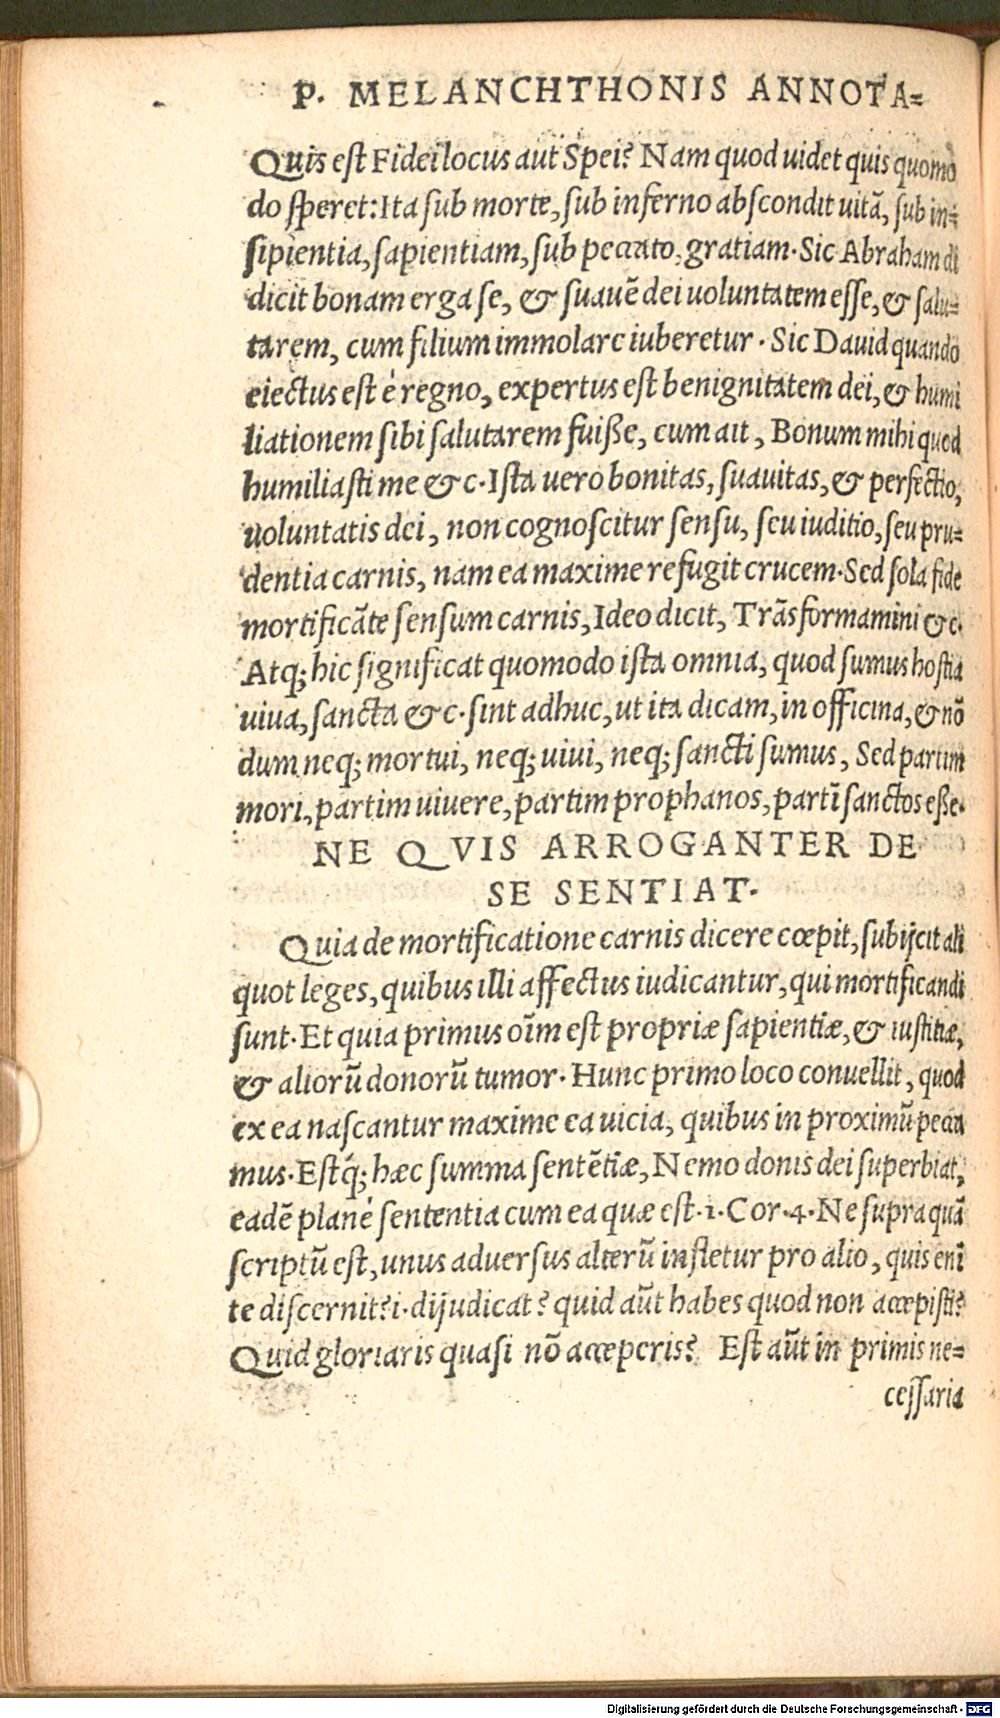 P. MELANCHTHONIS ANNOTA=
Quis est Fidei locus aut Spei? Nam quod uidet quis quomo
do speret: Ita sub morte, sub inferno abscondit uitã, sub in=
sipientia, sapientiam, sub peccato, gratiam. Sic Abraham di
dicit bonam erga se, & suauẽ dei uoluntatem esse, & salu=
tarem, cum filium immolare iuberetur. Sic Dauid quando
eiectus est è regno, expertus est benignitatem dei, & humi
liationem sibi salutarem fuiße, cum ait, Bonum mihi quod
humiliasti me & c. Ista uero bonitas, suauitas, & perfectio,
uoluntatis dei, non cognoscitur sensu, seu iuditio, seu pru=
dentia carnis, nam ea maxime refugit crucem. Sed sola fide
mortificãte sensum carnis, Ideo dicit, Trãsformamini & c.
Atq; hic significat quomodo ista omnia, quod sumus hostia
uiua, sancta & c. sint adhuc, ut ita dicam, in officina, & nõ
dum neq; mortui, neq; uiui, neq; sancti sumus, Sed partim
mori, partim uiuere, partim prophanos, partĩ sanctos eße.
NE QVIS ARROGANTER DE
SE SENTIAT.
Quia de mortificatione carnis dicere cœpit, subijcit ali
quot leges, quibus illi affectus iudicantur, qui mortificandi
sunt. Et quia primus oĩm est propriæ sapientiæ, & iustitiæ,
& aliorũ donorũ tumor. Hunc primo loco conuellit, quod
ex ea nascantur maxime ea uicia, quibus in proximũ pecca
mus. Estq́; hæc summa sentẽtiæ, Nemo donis dei superbiat,
eadẽ planè sententia cum ea quæ est. 1. Cor. 4. Ne supra quã
scriptũ est, unus aduersus alterũ infletur pro alio, quis enĩ
te discernit? i. dijudicat? quid aũt habes quod non accepisti?
Quid gloriaris quasi nõ acceperis? Est aũt in primis ne=
cessaria
Digitalisierung gefördert durch die Deutsche Forschungsgemeinschaft - DFG